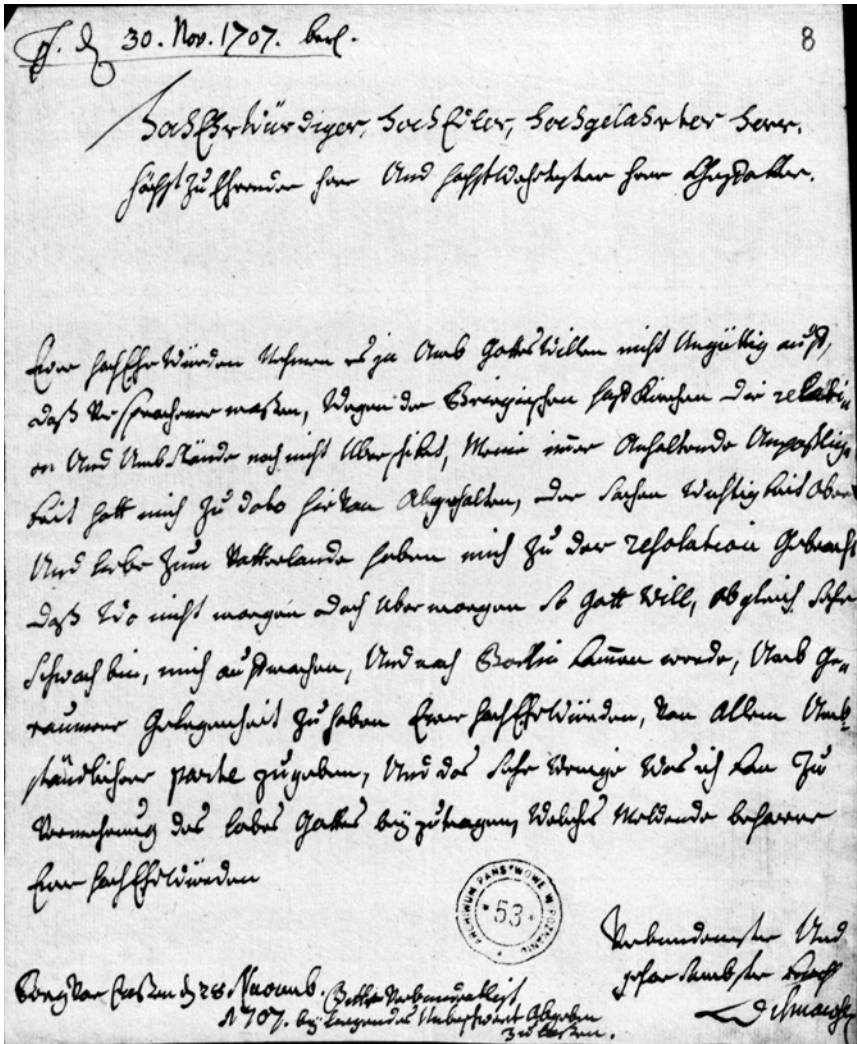 d 30. Nov. 1707. berl.
8
HochEhrwürdiger, HochEdler, Hochgelahrter Herr.
Höchst zu Ehrender Herr Und Höchstwehrtester Herr
Euer HochEhrWürden Nehmen es ja Umb Gottes Willen nicht Ungüttig auff,
daß Versprochener maßen, Wegen der Kirchen die relati-
on Und Umbstände noch nicht Uberschikt, Meine imer Anhaltende Unpäßlig-
keit hatt mich zu dato hiervon Abgehalten, der Sachen Wichtigkeit Aber
Und Liebe zum Vatterlande haben mich zu der resolution Gebracht
daß Wo nicht morgen doch Ubermorgen so Gott Will, Ob gleich Sehr
Schwach bin, mich auffmachen, Und nach Berlin komen werde, Umb Ge-
raumere Gelegenheit zu haben Euer HochEhrWürden, Von Allem Umb-
ständlicher parte zugeben, Und das Sehr Wenige Was ich kan Zu
Vermehrung des Lobes Gottes beyzutragen, Welches Meldende beharre
Euer HochEhrWürden
ARCHIWUM PAŃSTWOWE W POZNANIU
53
Verbundenster Und
gehorsambster Knecht
28 Novemb.
1707. Abgeben
zu laßen.